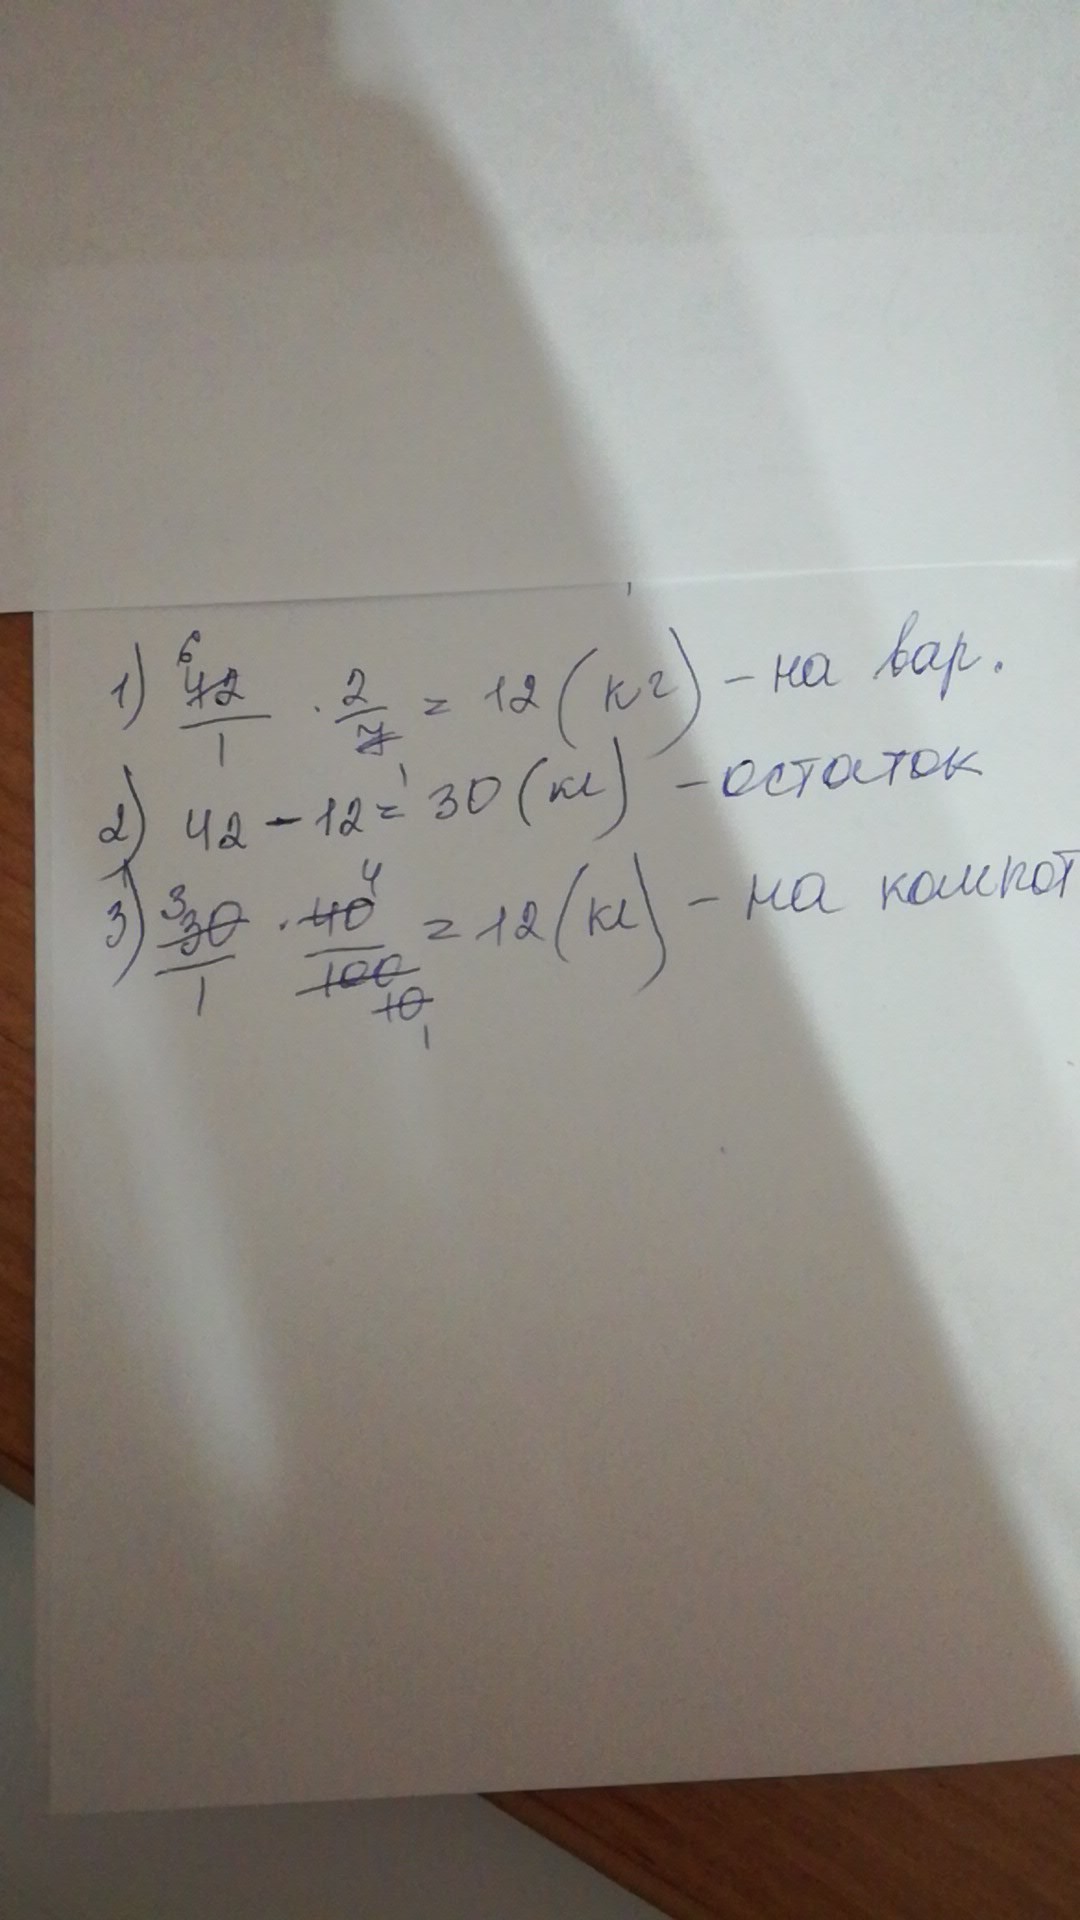 1) 42/1 · 2/7 = 12 (кг) – на вар.
2) 42 – 12 = 30 (кг) – остаток
3) 30/1 · 40/100 = 12 (кг) – на компот